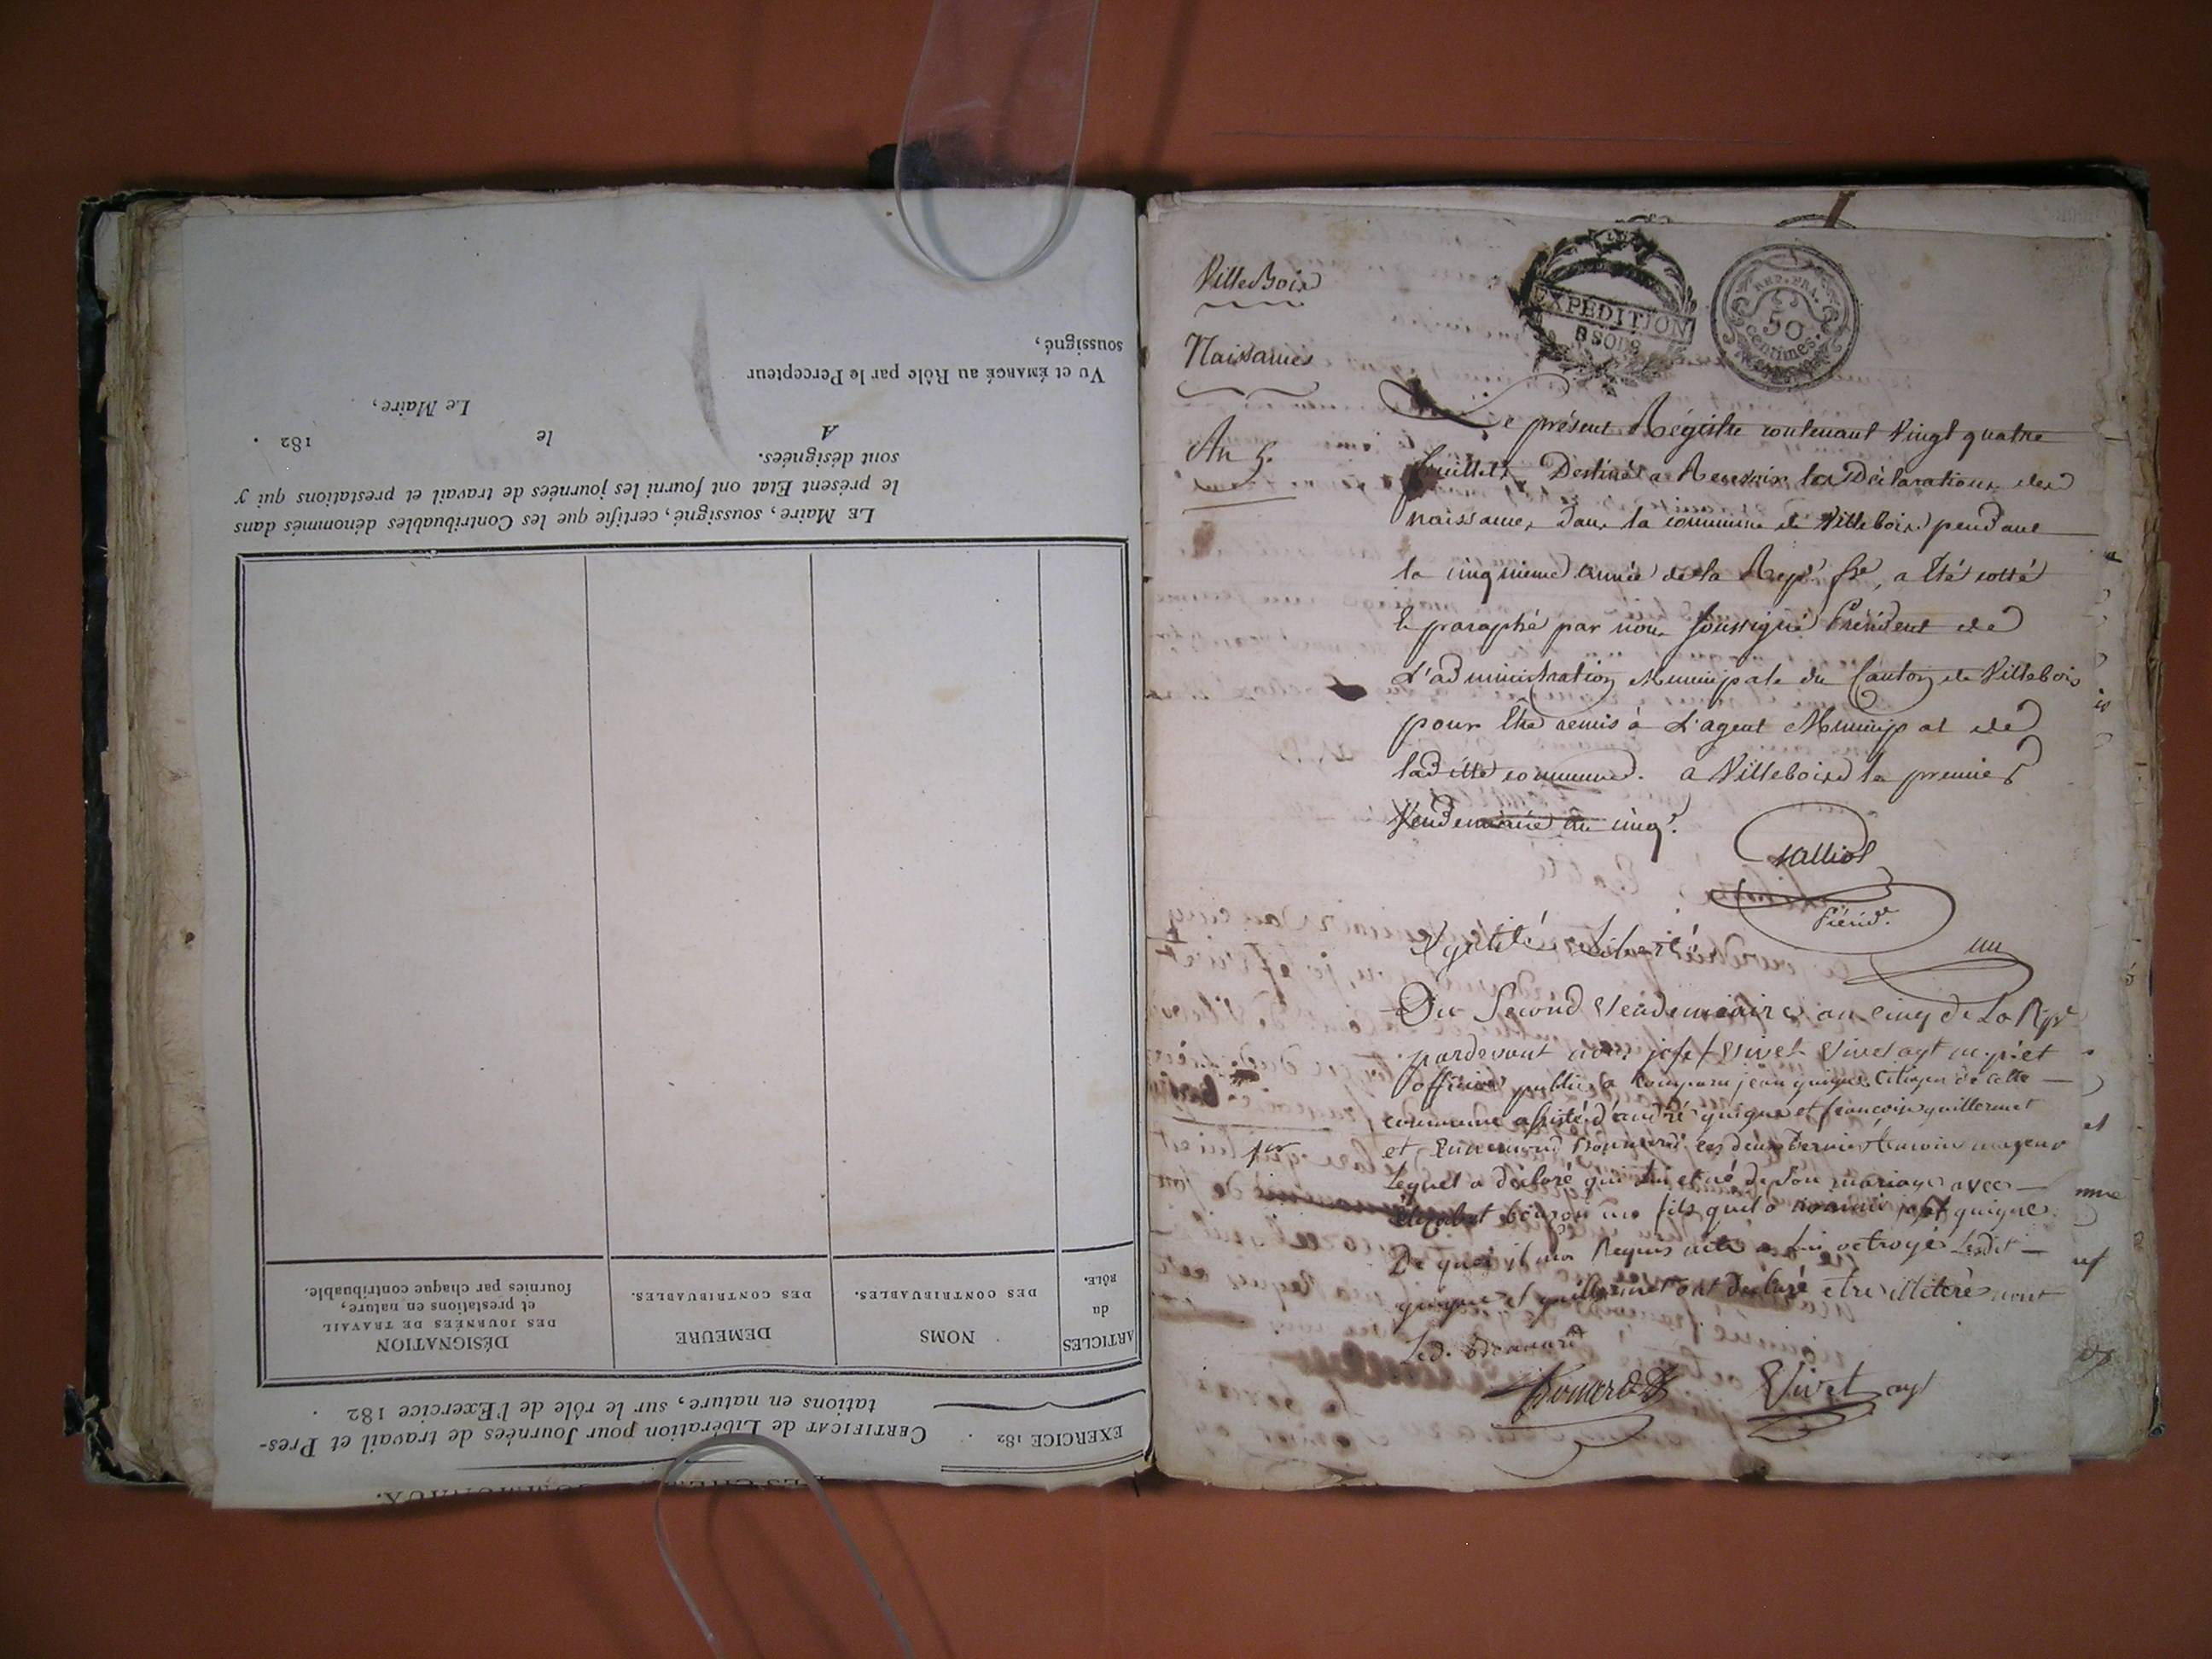 DES CHEMINS COMMUNAUX.
EXERCICE 182 .
CERTIFICAT de Libération pour Journées de travail et Pres-
tations en nature, sur le rôle de l'Exercice 182 .
ARTICLES
du
RÔLE.
NOMS
DES CONTRIBUABLES.
DEMEURE
DES CONTRIBUABLES.
DÉSIGNATION
DES JOURNÉES DE TRAVAIL
et prestations en nature,
fournies par chaque contribuable.
LE Maire, soussigné, certifie que les Contribuables dénommés dans
le présent Etat ont fourni les journées de travail et prestations qui y
sont désignées.
A le 182 .
Le Maire,
VU et ÉMARGÉ au Rôle par le Percepteur
soussigné,
VilleBois
Naissances
An 5.
EXPEDITION
8 SOLS
REP. FRA.
50
centimes.
Le présent Régistre contenant Vingt quatre
feuillets, Destinés a Recevoir les Déclarations des
naissances dans la commune de Villebois pendant
la cinquieme année de la Rep.e fse, a été cotté
et paraphé par nous soussigné Président de
L'administration Municipale du Canton de Villebois
pour être remis à L'agent Municipal de
laditte commune. a Villebois le premier
Vendemiaire an cinq.
Présid.t
un
Egalité Liberté
Du Second Vendemiaire an cinq de La Rp
pardevant nous josef Vivet agt
officier public a comparu jean guigue Citoyen de cette
commune assisté d'andré guigue et francois guillermet
et Ennemond Bonnard ces deux Dernier temoins majeur
1er
Lequel a déclaré qui lui et né de Son mariage avec
élizabet un fils quil a nommé josef guigue
De quoi il ma Requis acte a lui octroyé Lesdit
guigue et guillermet ont declaré etre illiteré
Led. Bonnard
Bonnard Vivet agt